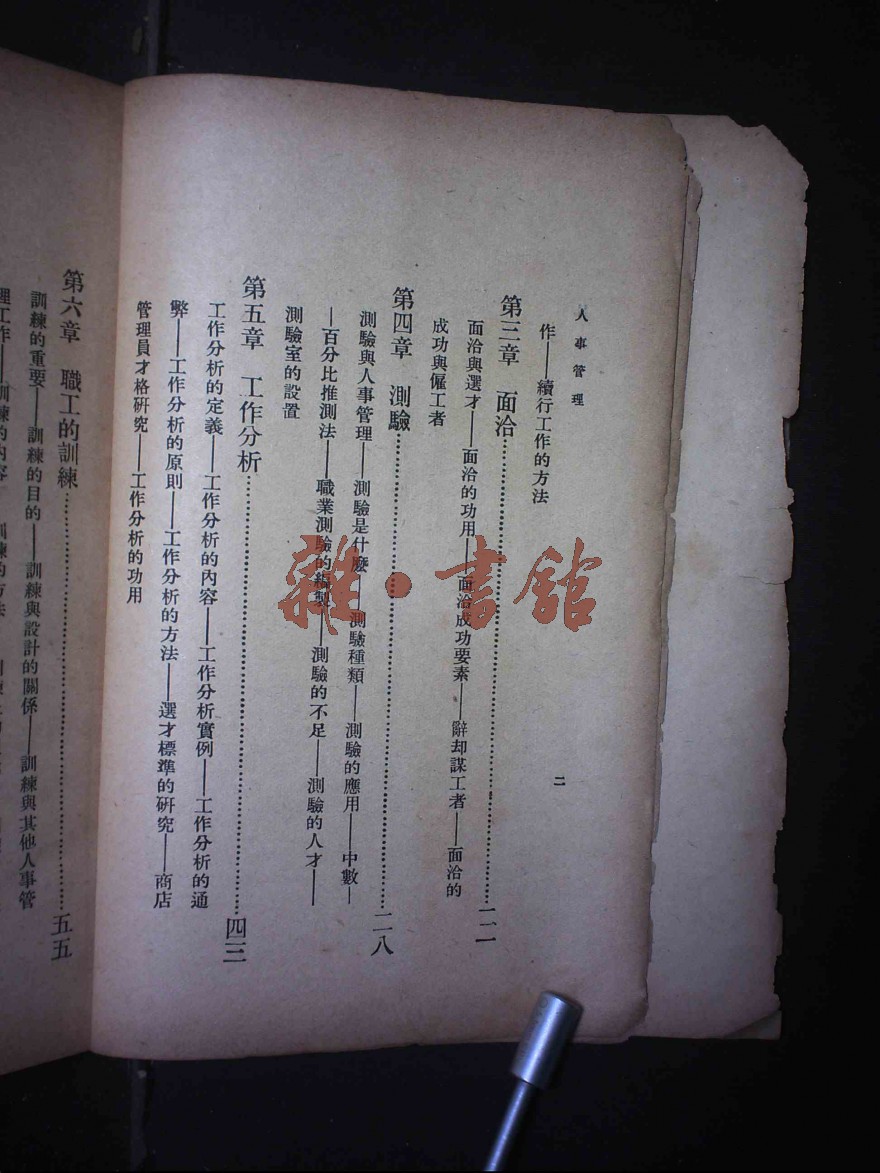 人事管理
二
作——續行工作的方法
第三章　面洽……一二
面洽與選才——面洽的功用——面洽成功要素——辭却謀工者——面洽的
成功與僱工者
第四章　測驗……二八
測驗與人事管理——測驗是什麼——測驗種類——測驗的應用——中數—
—百分比推測法——職業測驗的編製——測驗的不足——測驗的人才——
測驗室的設置
第五章　工作分析……四三
工作分析的定義——工作分析的內容——工作分析實例——工作分析的通
弊——工作分析的原則——工作分析的方法——選才標準的研究——商店
管理員才格研究——工作分析的功用
第六章　職工的訓練……五五
訓練的重要——訓練的目的——訓練與設計的關係——訓練與其他人事管
理工作——訓練的內容
雜·書館